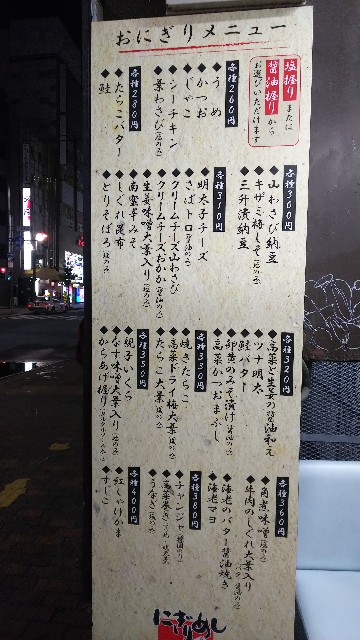 おにぎりメニュー
塩握り または
醤油握り から
お選びいただけます
各種260円
◆うめ
◆かつお
◆じゃこ
◆シーチキン
◆葉わさび(塩のみ)
各種280円
◆たらこバター
◆鮭
各種300円
◆山わさび納豆
◆キザミ梅しそ(塩のみ)
◆三升漬納豆
各種310円
◆明太子チーズ
◆さばトロ(醤油のみ)
◆クリームチーズ山わさび
◆クリームチーズおかか(醤油のみ)
◆生姜味噌大葉入り(塩のみ)
◆南蛮辛みそ
◆しぐれ昆布
◆とりそぼろ(塩のみ)
各種320円
◆高菜と生姜の醤油和え
◆ツナ明太
◆鮭バター
◆卵黄のみそ漬け(醤油のみ)
◆高菜かつおまぶし
各種330円
◆焼きたらこ
◆高菜ドライ梅大葉(塩のみ)
◆たらこ大葉(塩のみ)
各種350円
◆親子いくら
◆なす味噌大葉入り(塩のみ)
◆からあげ握り
各種360円
◆角煮味噌(塩のみ)
◆牛肉のしぐれ大葉入り
◆海老のバター醤油焼き
◆海老マヨ
各種380円
◆チャンジャ
◆高菜巻き
◆うなぎ(塩のみ)
各種400円
◆紅しゃけかま
◆すじこ
にぎりめし